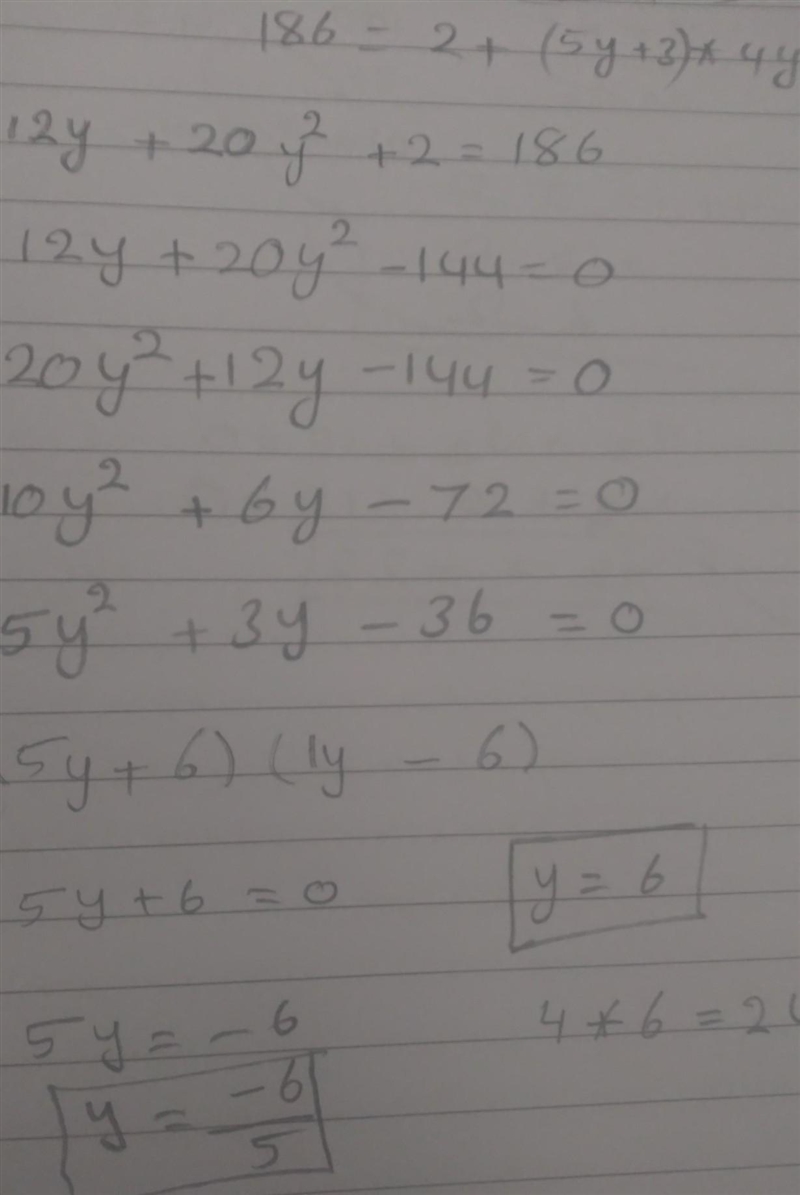 186 = 2 + (5y+3)* 4y
12y + 20y² + 2 = 186
12y + 20y² - 144 = 0
20y² + 12y - 144 = 0
10y² + 6y - 72 = 0
5y² + 3y - 36 = 0
(5y + 6) (1y - 6)
5y + 6 = 0 y = 6
5y = -6 4 * 6 = 2
y = -6/5